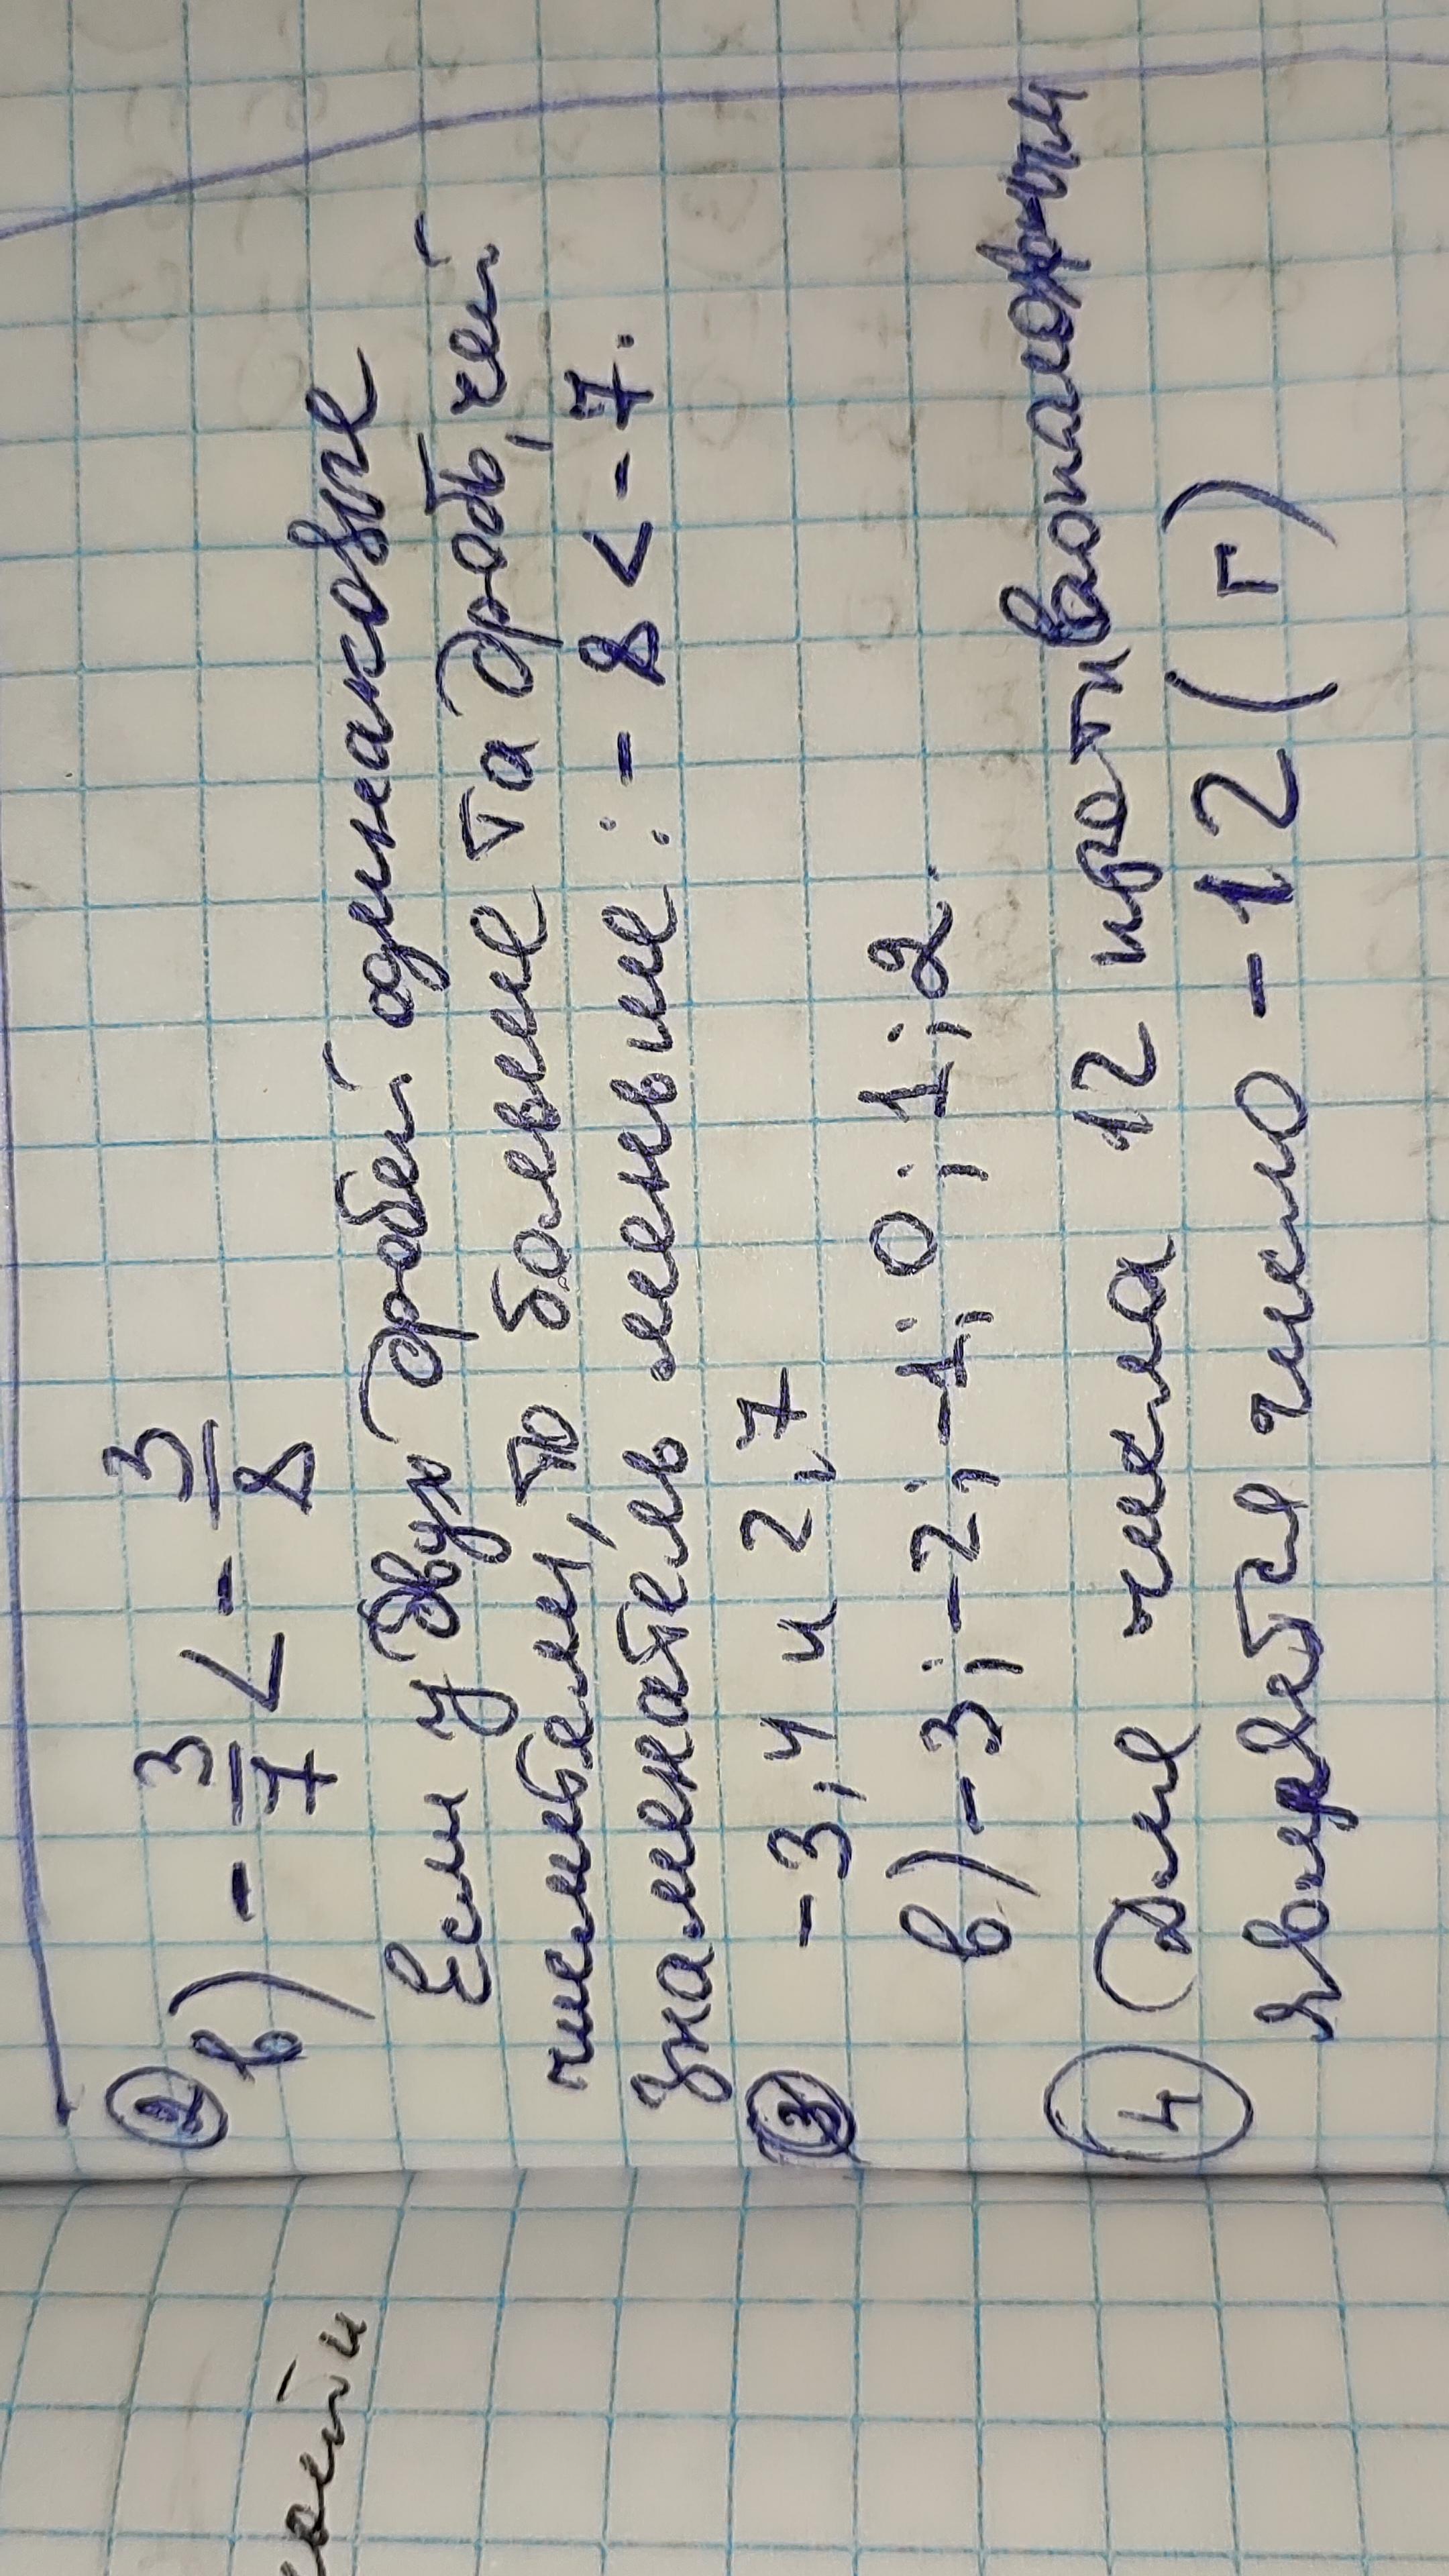 2
в) - 3/7 < - 3/8
Если у двух дробей одинаковые
числители, то больше та дробь, чей
знаменатель меньше: - 8 < - 7.
3 -3,4 и 2,7
в) -3; -2; -1; 0; 1; 2.
4 Для числа 12 противоположным
является число - 12 (г)